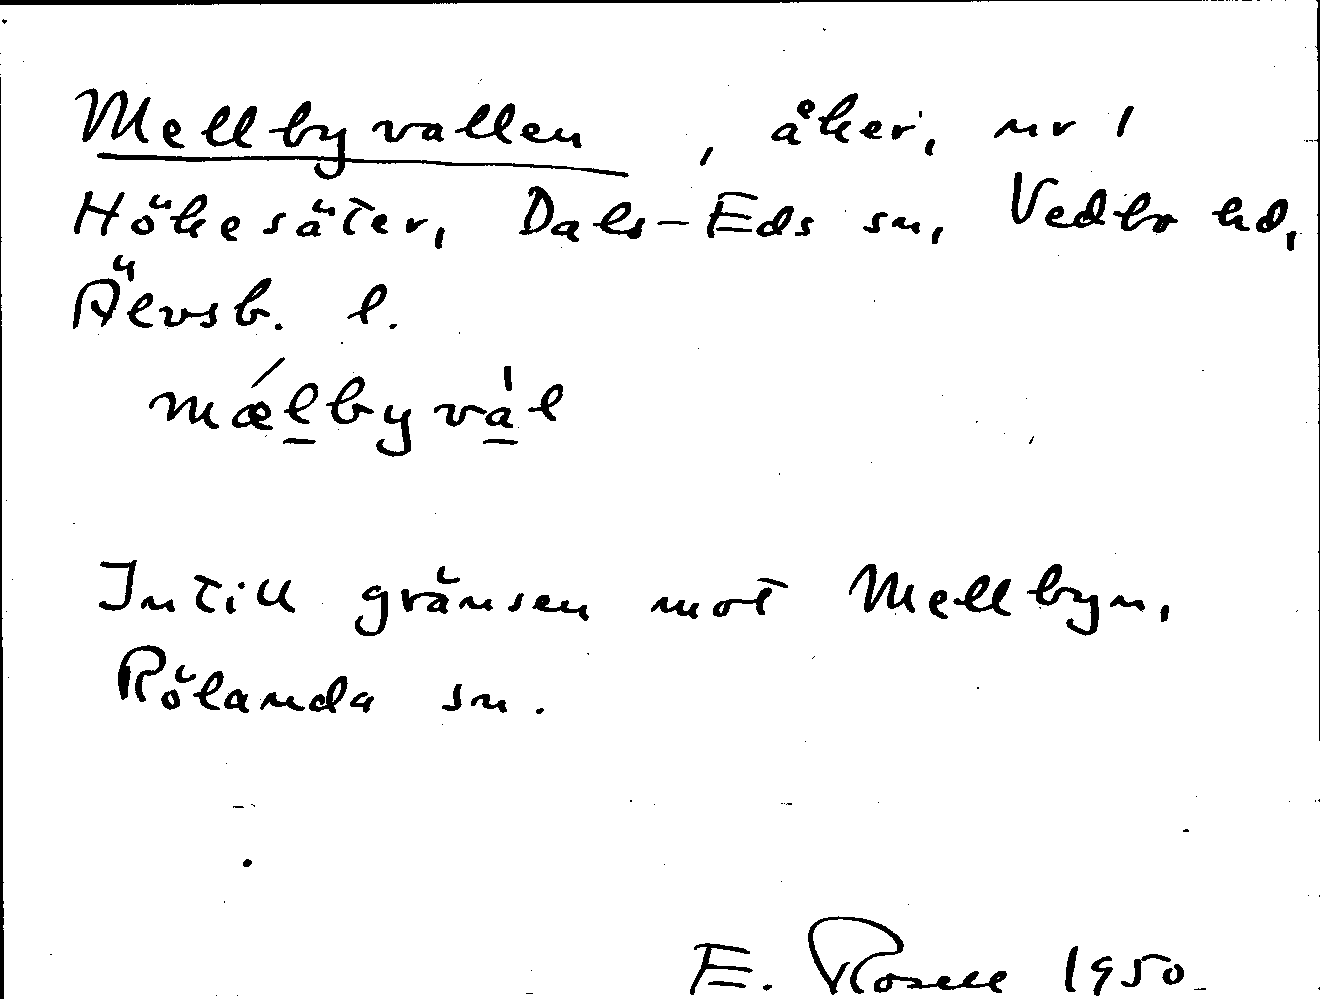 Mellbyvallen, åker, nr 1
Hökesäter, Dals-Eds sn, Vedbo hd,
Älvsb. l.
mǽl̲byvà̲l
Intill gränsen mot Mellbyn,
Rölanda sn.
E. Rosell 1950